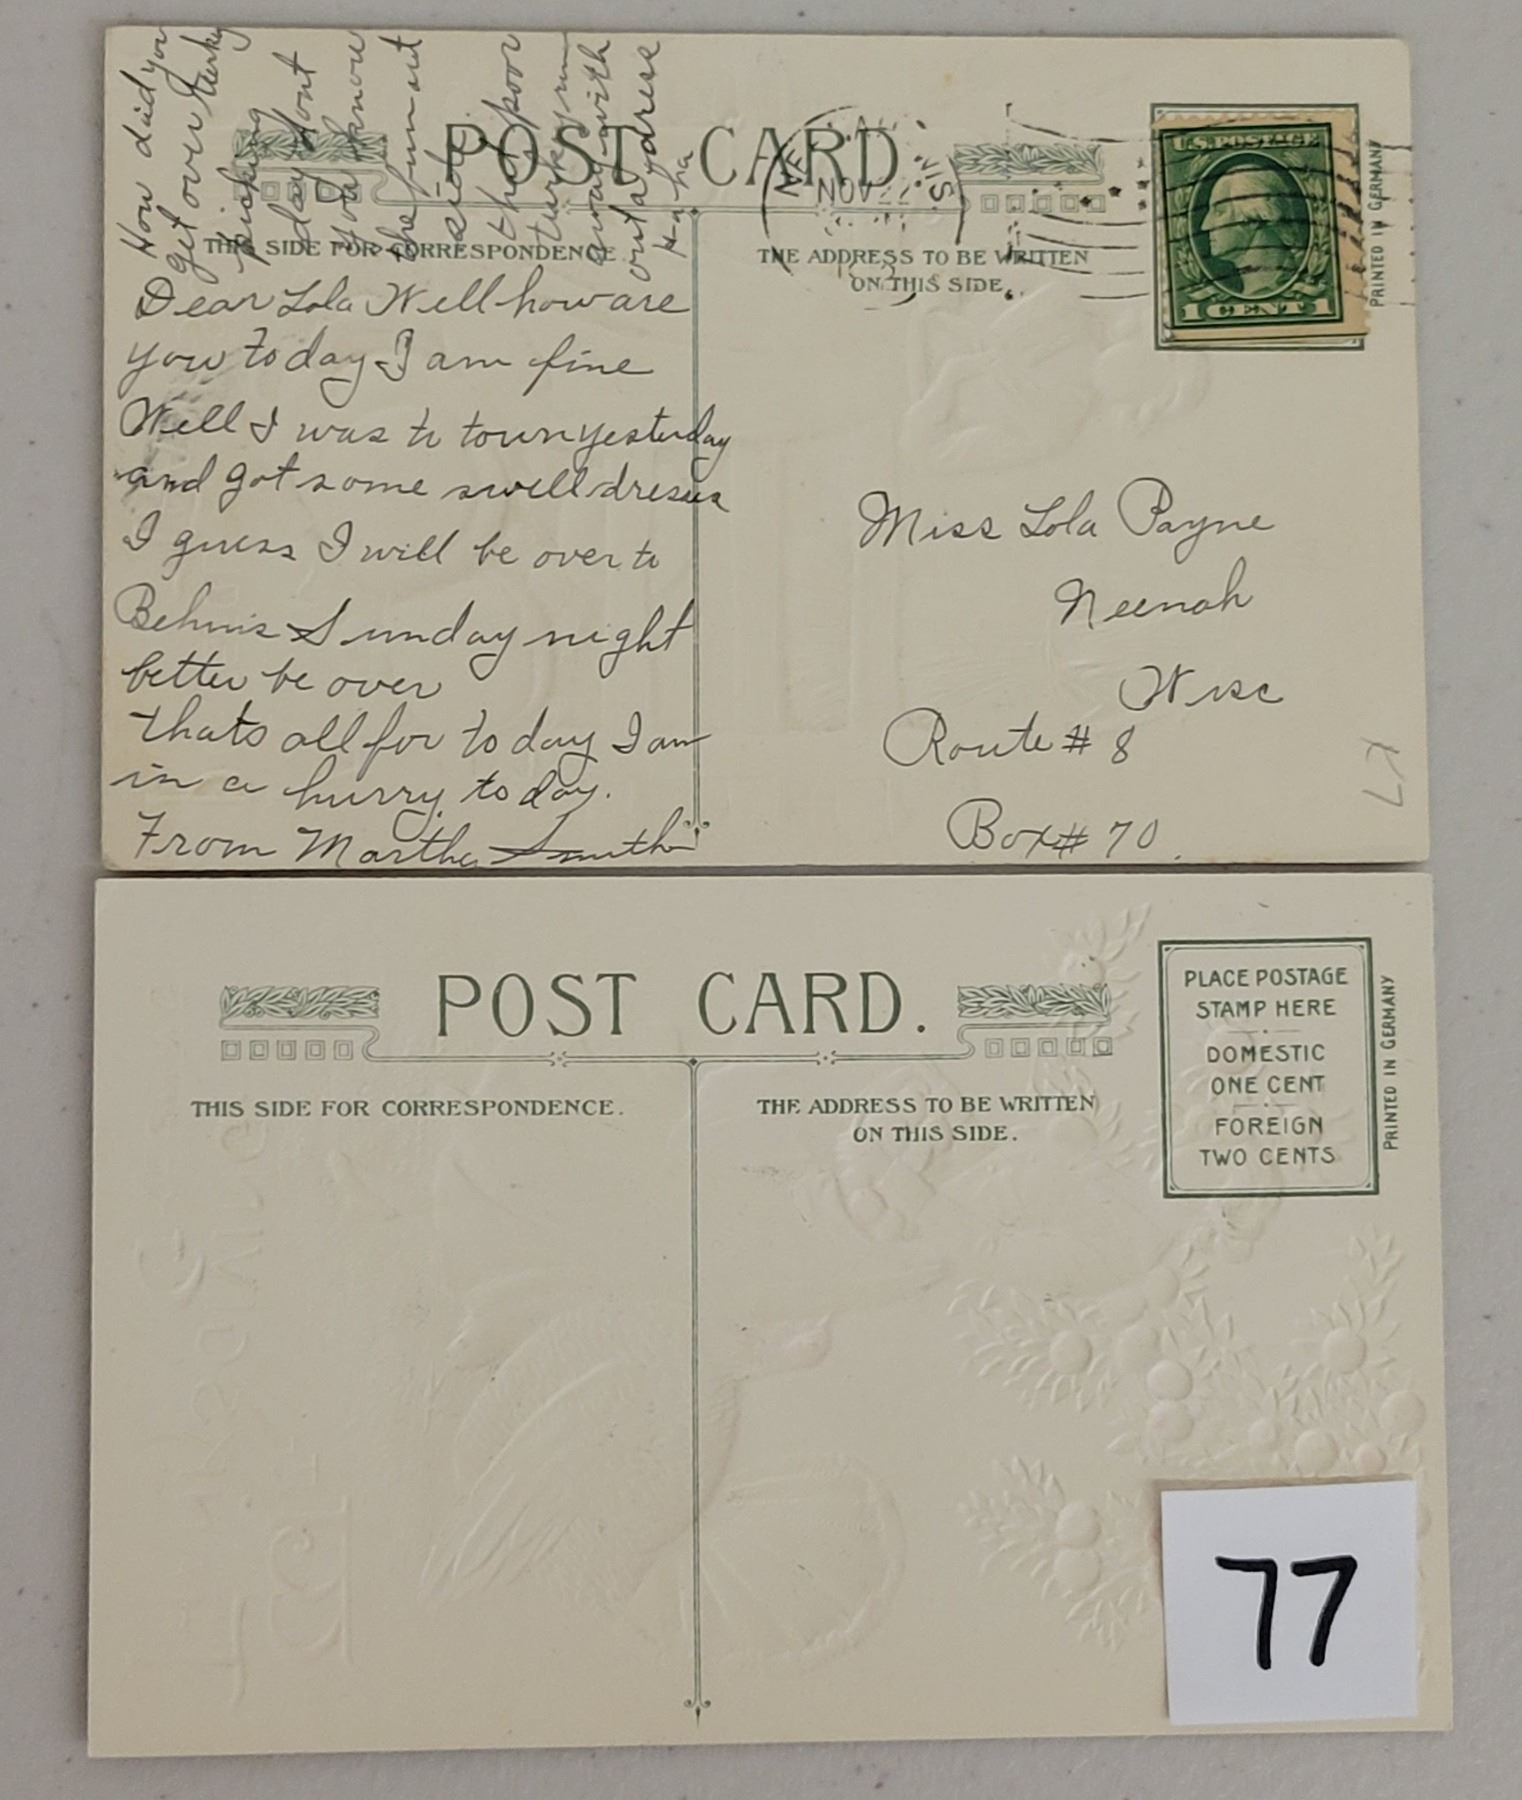 How did you
get over turky
picking
day dont
you know
the fun out
side
that poor
turky run
away with
out a dress
Ha ha
POST CARD.
NOV 22
WIS.
U.S. POSTAGE
1 CENT 1
PRINTED IN GERMANY
THIS SIDE FOR CORRESPONDENCE.
THE ADDRESS TO BE WRITTEN
ON THIS SIDE.
Dear Lola Well how are
you to day I am fine
Well I was to town yesterday
and got some swell dresses
I guess I will be over to
Behm's Sunday night
better be over
thats all for to day I am
in a hurry to day.
From Martha Smith
Miss Lola Payne
Neenah
Wisc
Route # 8
Box # 70.
POST CARD.
THIS SIDE FOR CORRESPONDENCE.
THE ADDRESS TO BE WRITTEN
ON THIS SIDE.
PLACE POSTAGE
STAMP HERE
DOMESTIC
ONE CENT
FOREIGN
TWO CENTS
PRINTED IN GERMANY
77